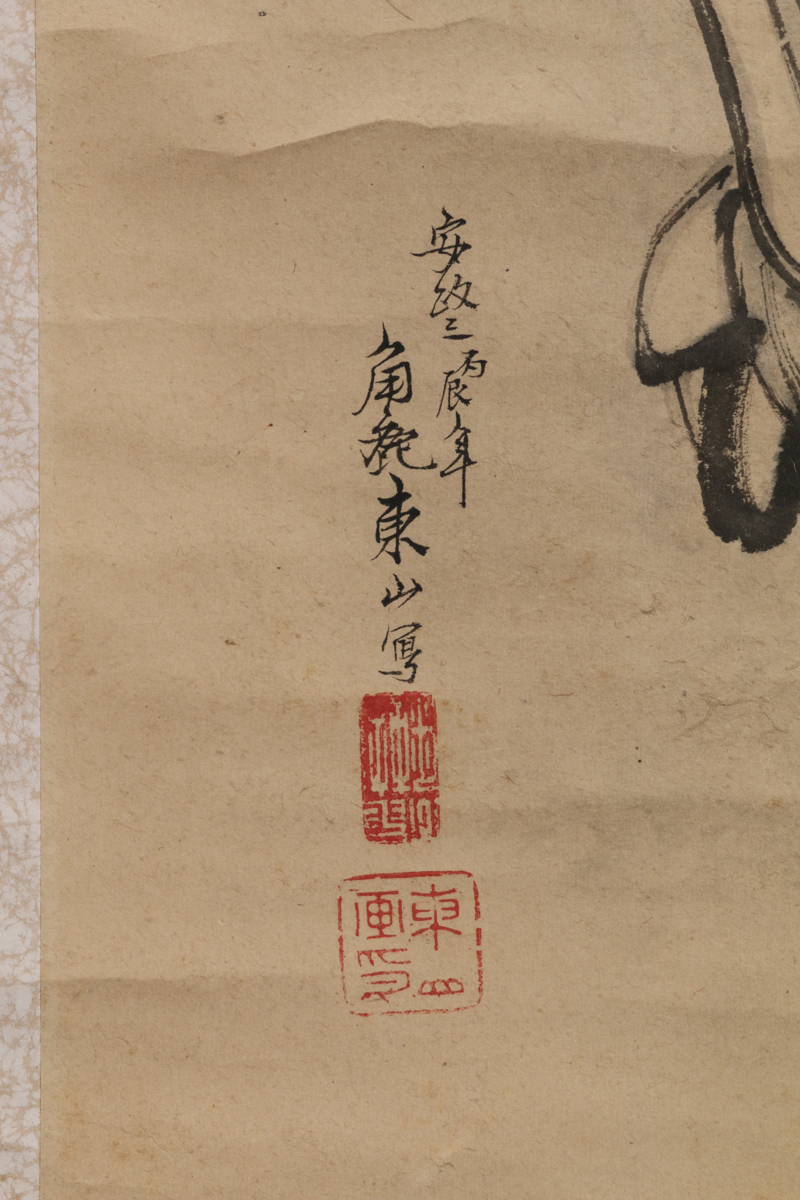 安政三丙辰年
角鹿東山寫
東山
画印